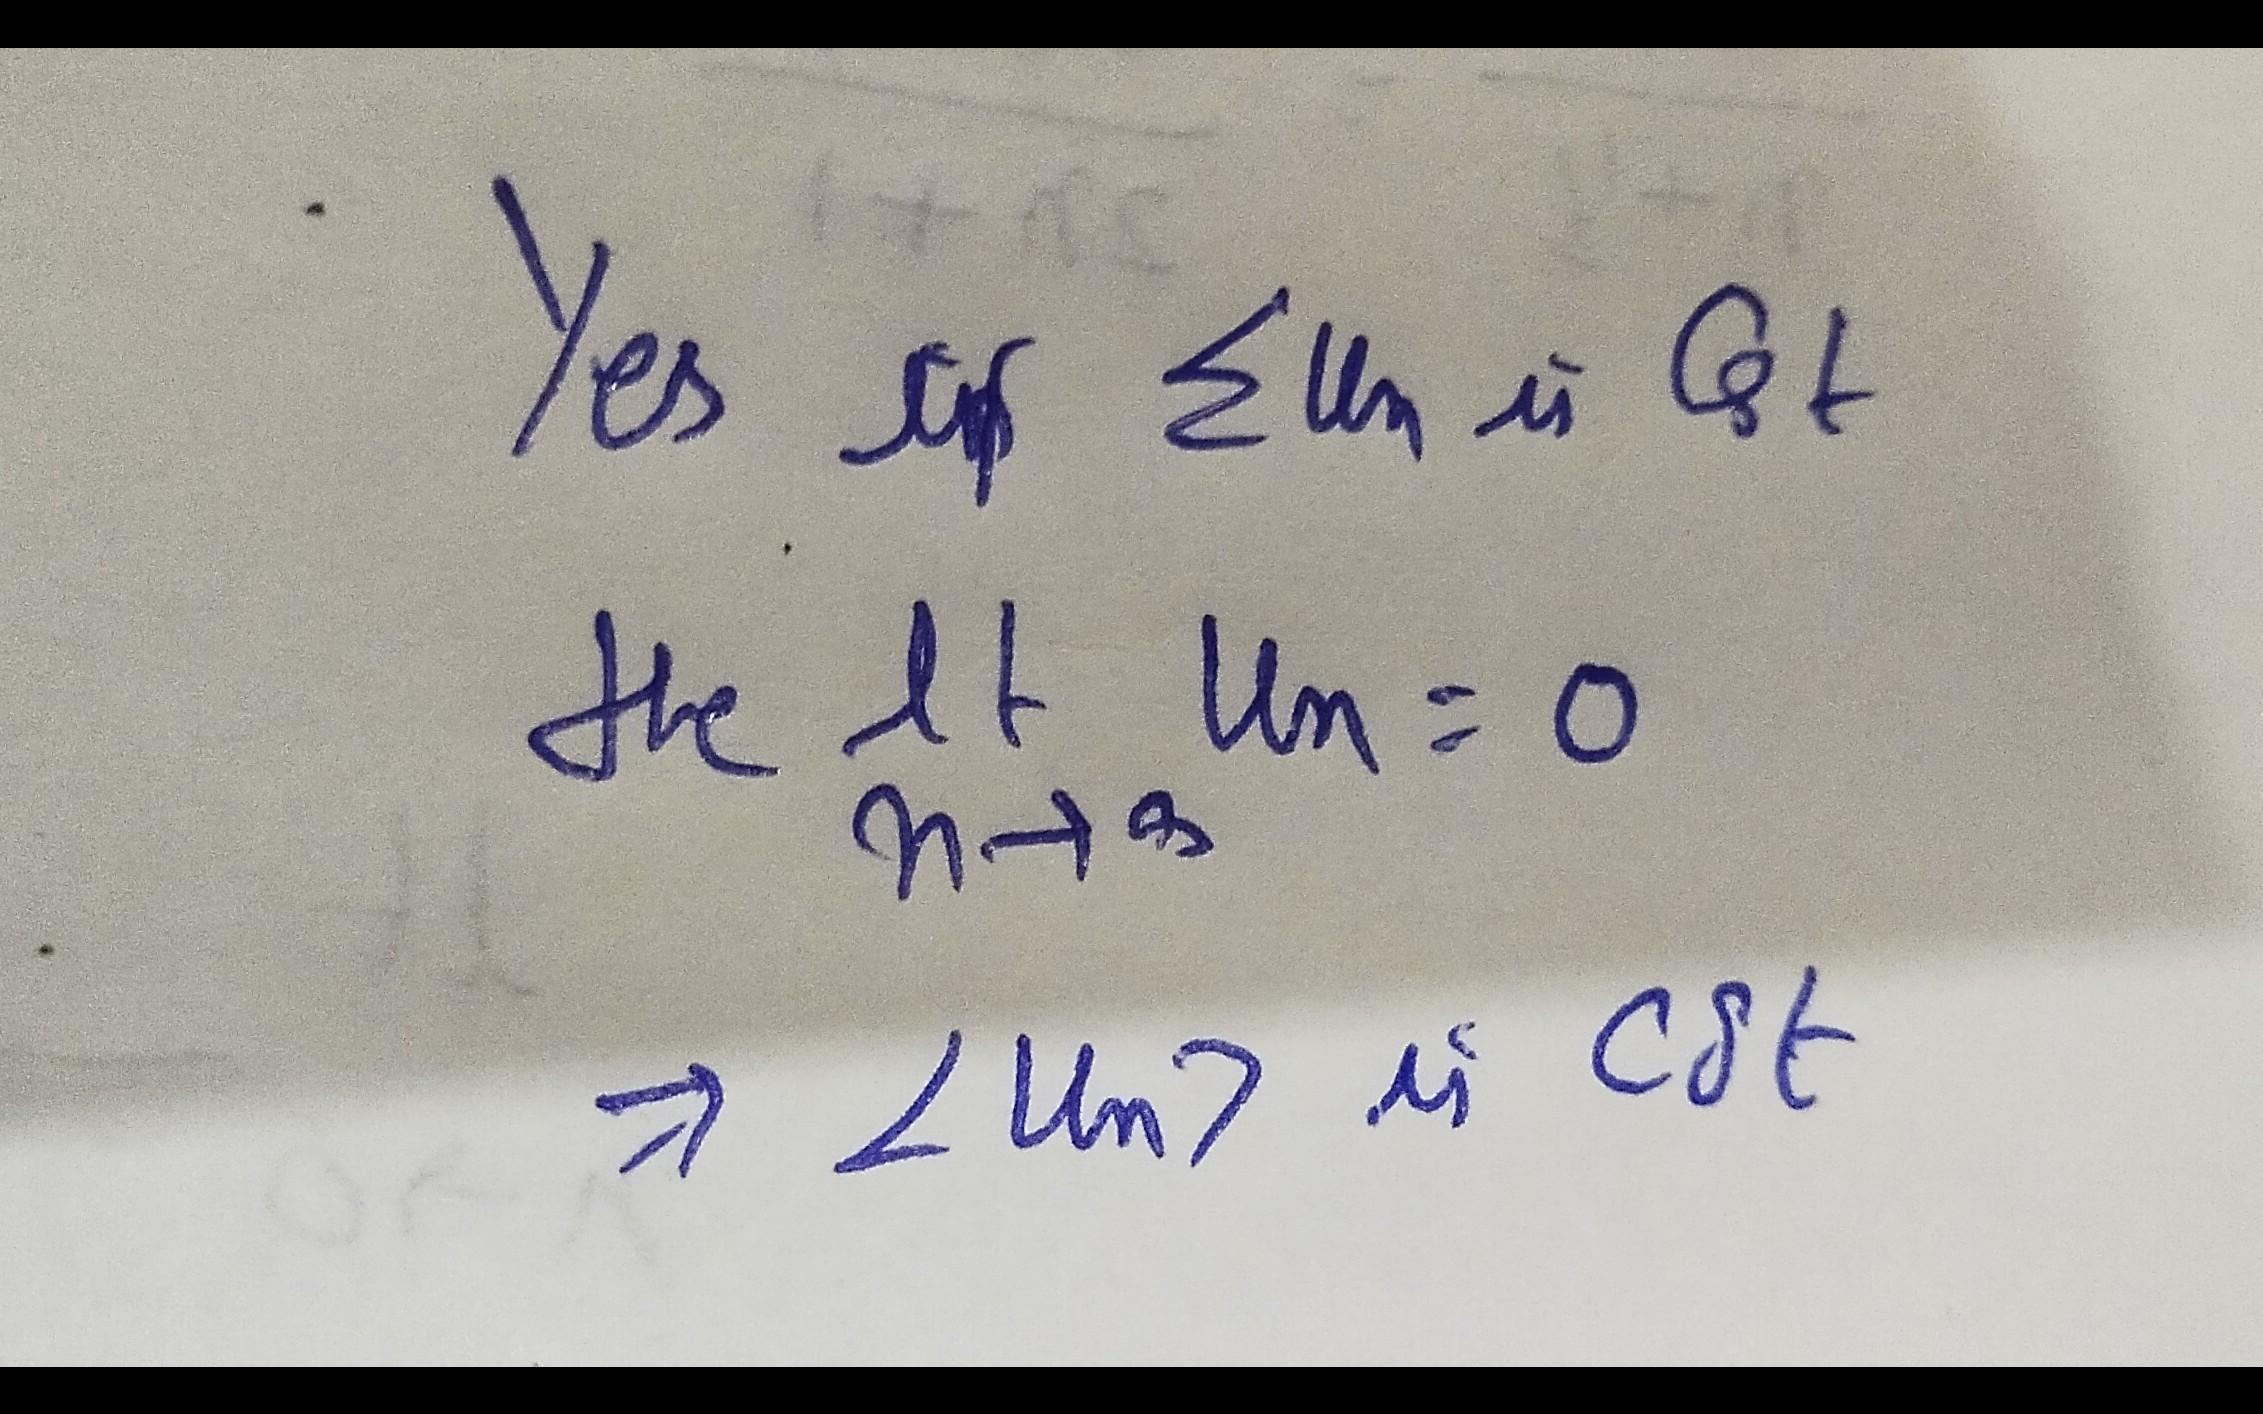 Yes if Σ Un is Cgt
the lt Un = 0
n→∞
⇒ <Un> is cgt